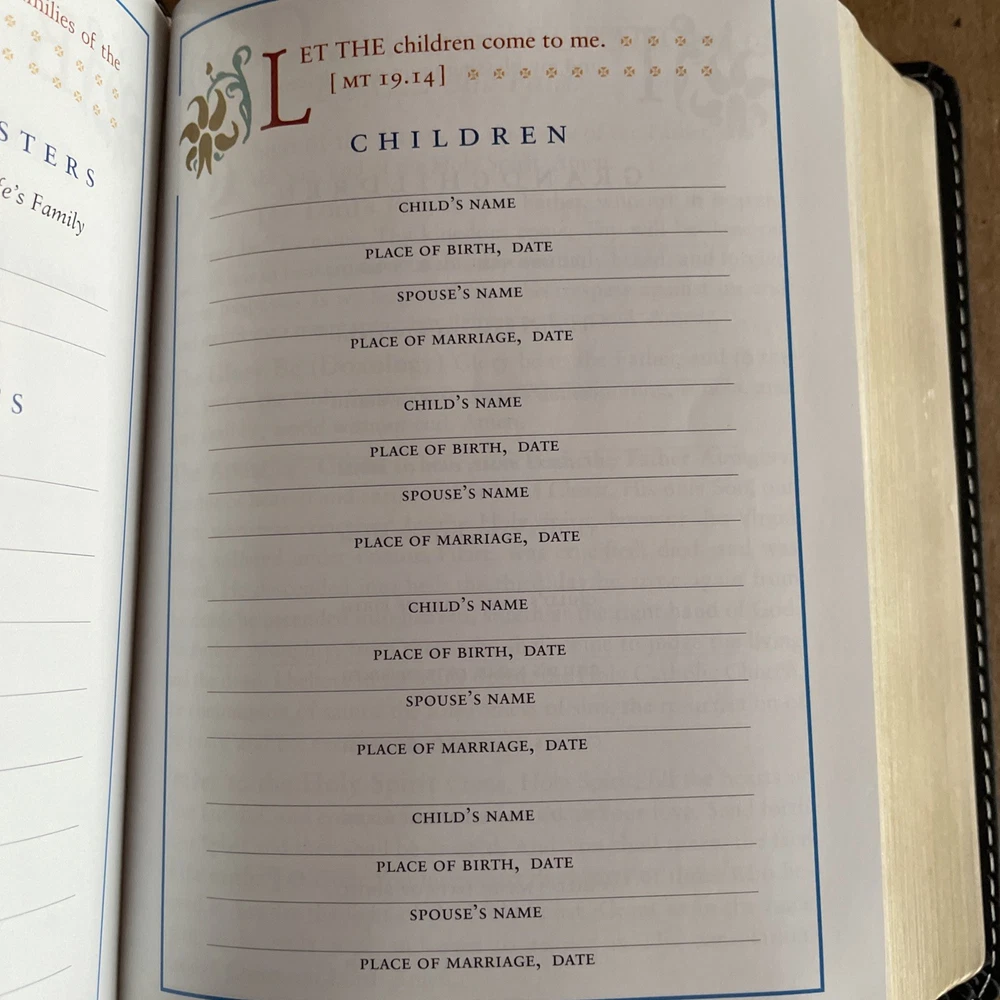 milies of the
STERS
fe's Family
DS
LET THE children come to me.
[MT 19.14]
CHILDREN
CHILD'S NAME
PLACE OF BIRTH, DATE
SPOUSE'S NAME
PLACE OF MARRIAGE, DATE
CHILD'S NAME
PLACE OF BIRTH, DATE
SPOUSE'S NAME
PLACE OF MARRIAGE, DATE
CHILD'S NAME
PLACE OF BIRTH, DATE
SPOUSE'S NAME
PLACE OF MARRIAGE, DATE
CHILD'S NAME
PLACE OF BIRTH, DATE
SPOUSE'S NAME
PLACE OF MARRIAGE, DATE